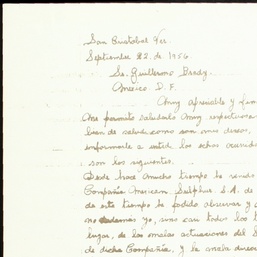 San Cristobal Ver
Septiembre 22. de 1956.
Sr. Guillermo Brady.
Mexico D. F.
Muy apreciable y
Me permito saludarlo muy
bien de salud como son mis deseos,
informarle a usted los echos
son los siguientes.
Desde hace mucho tiempo
Compañia Mexican Sulphur S. A. de
de este tiempo he podido observar y
no yo, sino casi todos los
lugar, de las malas actuaciones del
de dicha Compañia, y la mala